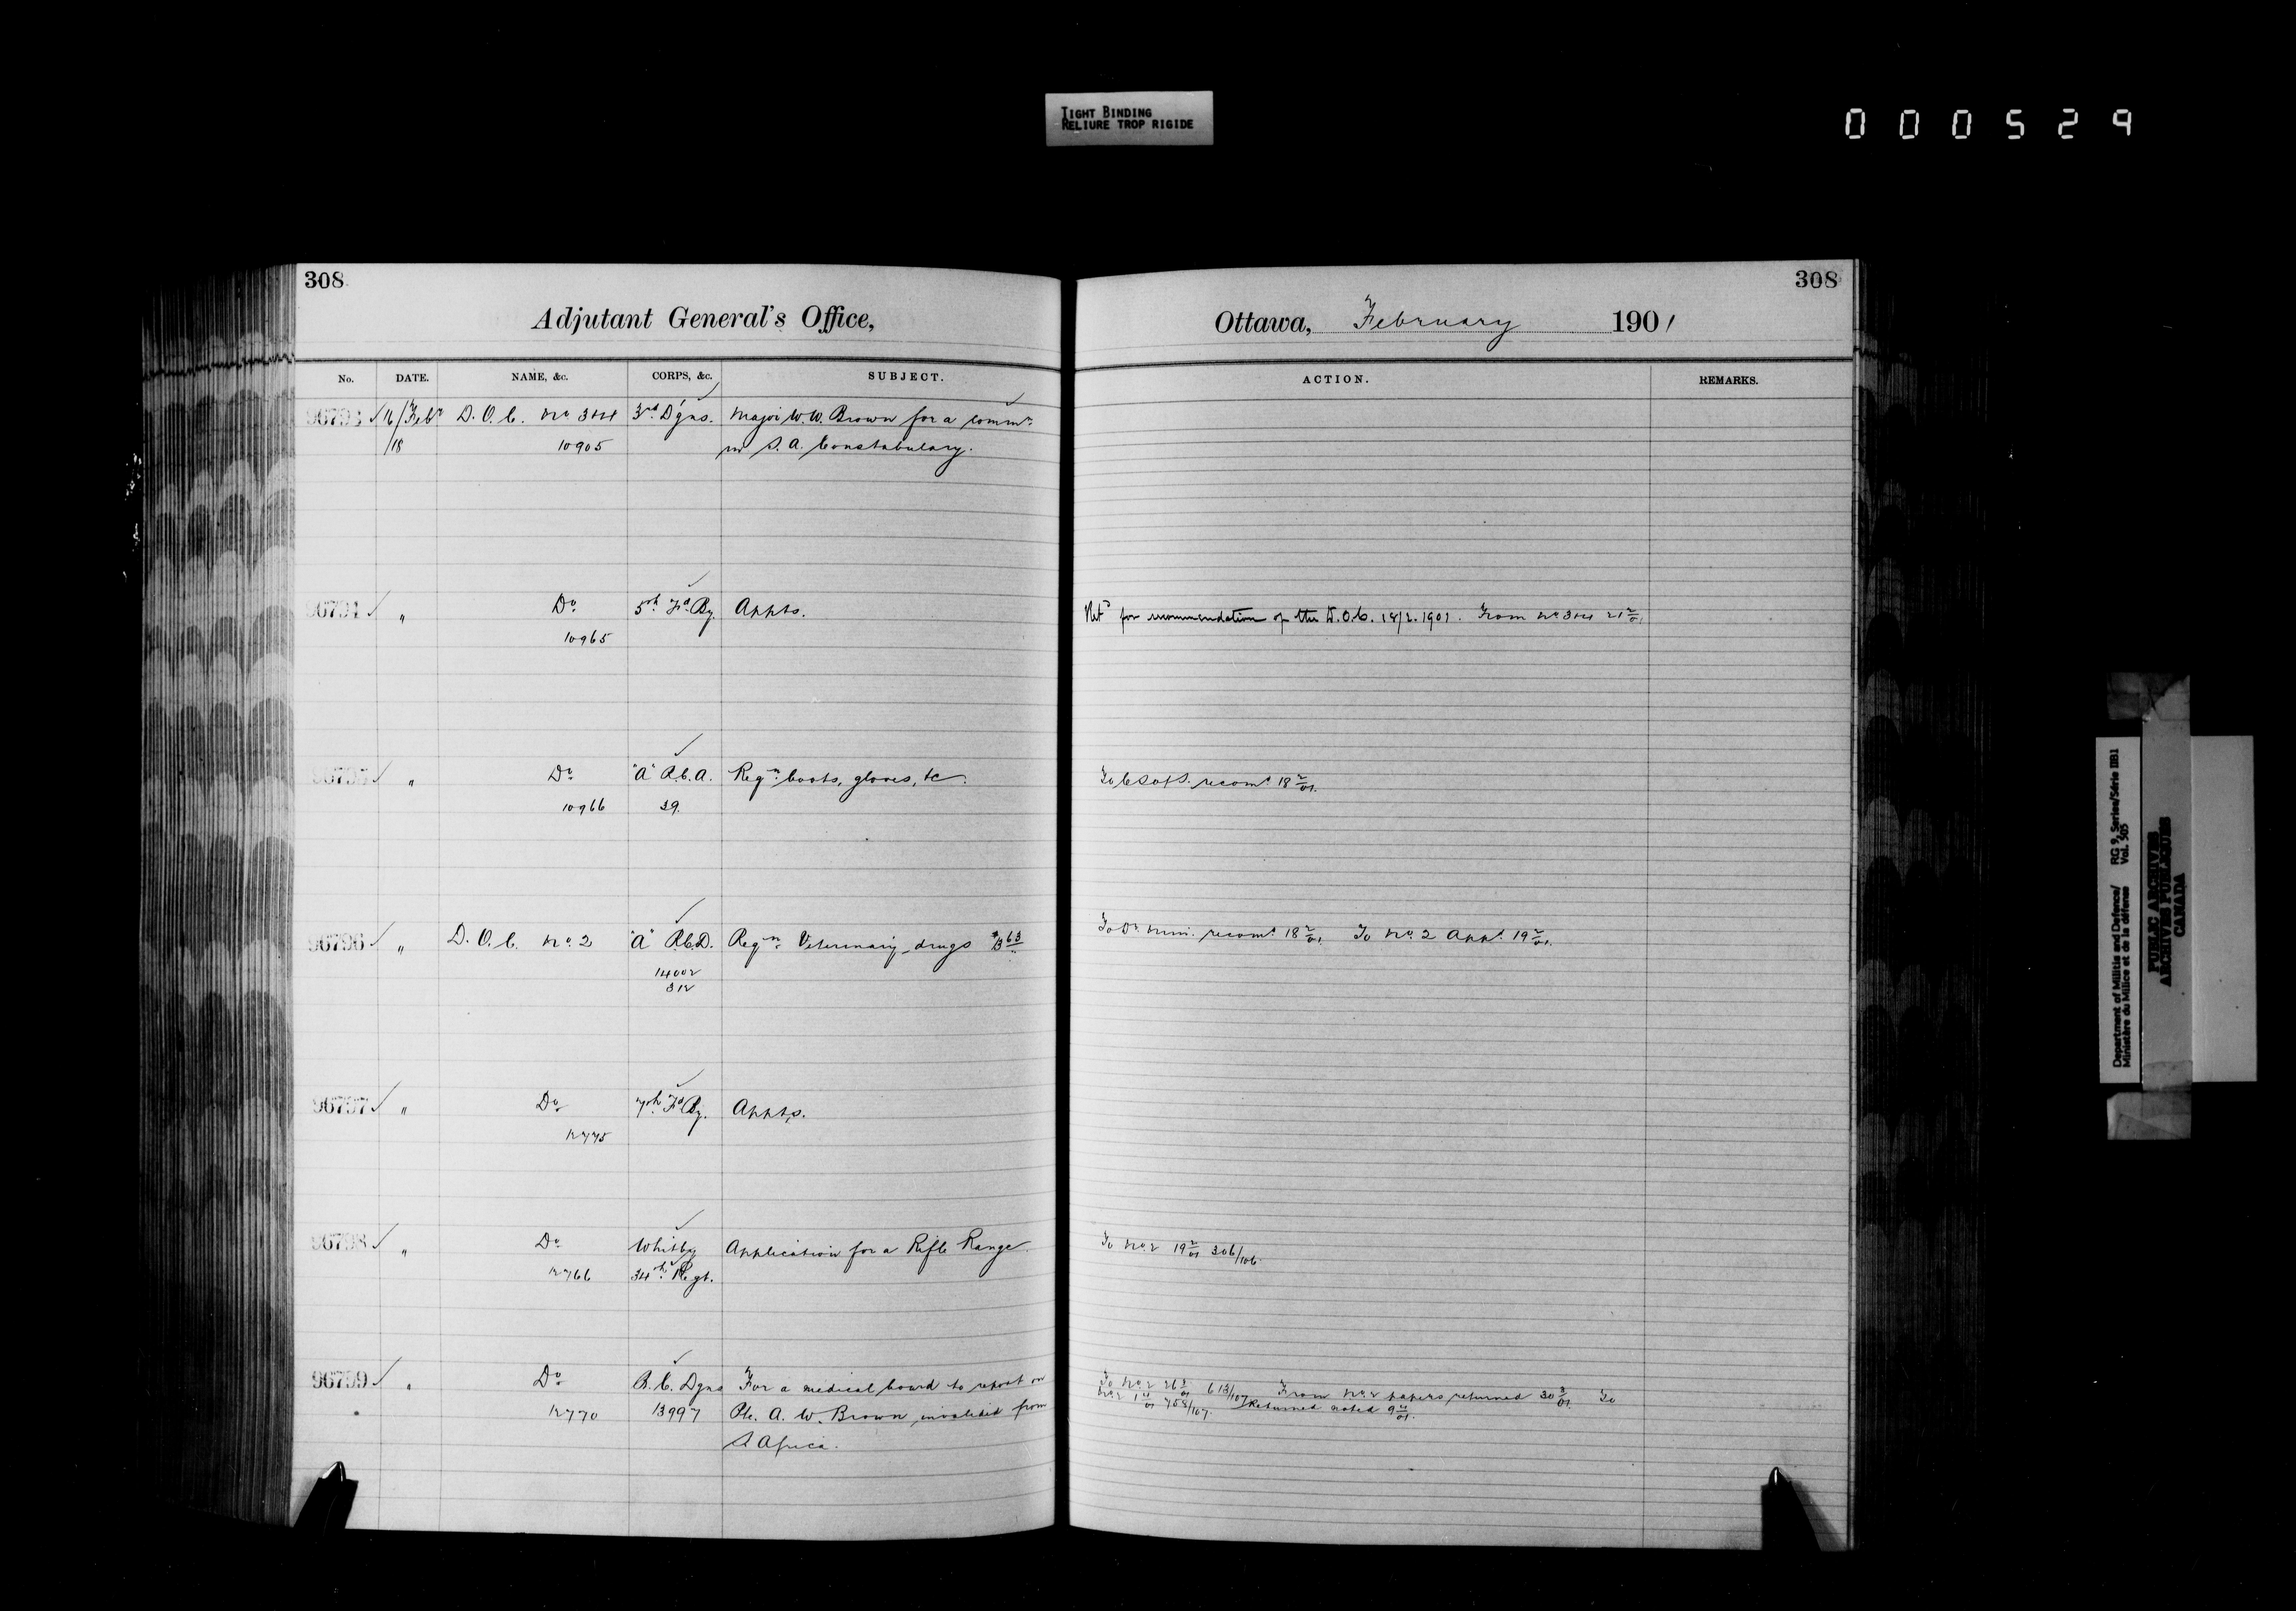 TIGHT BINDING
RELIURE TROP RIGIDE
000529
308
308
Adjutant General's Office,
Ottawa, February 1901
No. DATE. NAME, &c. CORPS, &c. SUBJECT. ACTION. REMARKS.
96793 ✓ 16/Feby D.O.C. No 3&4 3rd D'gns. Major W.W. Brown for a commn
/18 10905 in S.A. Constabulary.
96794 ✓ " Do 5th Fd By. Appts. Retd for recommendation of the D.O.C. 18/2.1901. From No 3&4 21 2/01
10965
96795 ✓ " Do "A" R.C.A. Reqn boots, gloves, &c. To C S of S. recomd 18 2/01.
10966 39.
96796 ✓ " D.O.C. No 2 "A" R.C.D. Reqn Veterinary drugs To Dr Min. recomd 18 2/01. To No 2 Appd 19 2/01.
14002
312
96797 ✓ " Do 7th Fd By. Appts.
12775
96798 ✓ " Do Whitby Application for a Rifle Range. To No 2 19 2/01 306/106.
12766 34th Regt.
96799 ✓ " Do R.C. Dgns For a medical board to report on To No 2 26 2/01 613/107 From No 2 papers returned 30 3/01. To
12770 13997 Pte. A. W. Brown invalided from No 2 1 4/01 758/107. Returned noted 9 4/01.
S Africa.
Department of Militia and Defence/ RG 9, Series/Série IIB1
Ministère du Milice et de la défence Vol. 505
PUBLIC ARCHIVES
ARCHIVES PUBLIQUES
CANADA